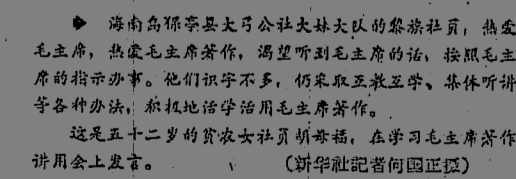 ▶ 海南岛保亭县大弓公社大妹大队的黎族社员，热爱
毛主席，热爱毛主席著作，渴望听到毛主席的话，按照毛主
席的指示办事。他们识字不多，仍采取互教互学、集体听讲
等各种办法，积极地活学活用毛主席著作。
这是五十二岁的贫农女社员胡母福，在学习毛主席著作
讲用会上发言。（新华社記者何国正摄）